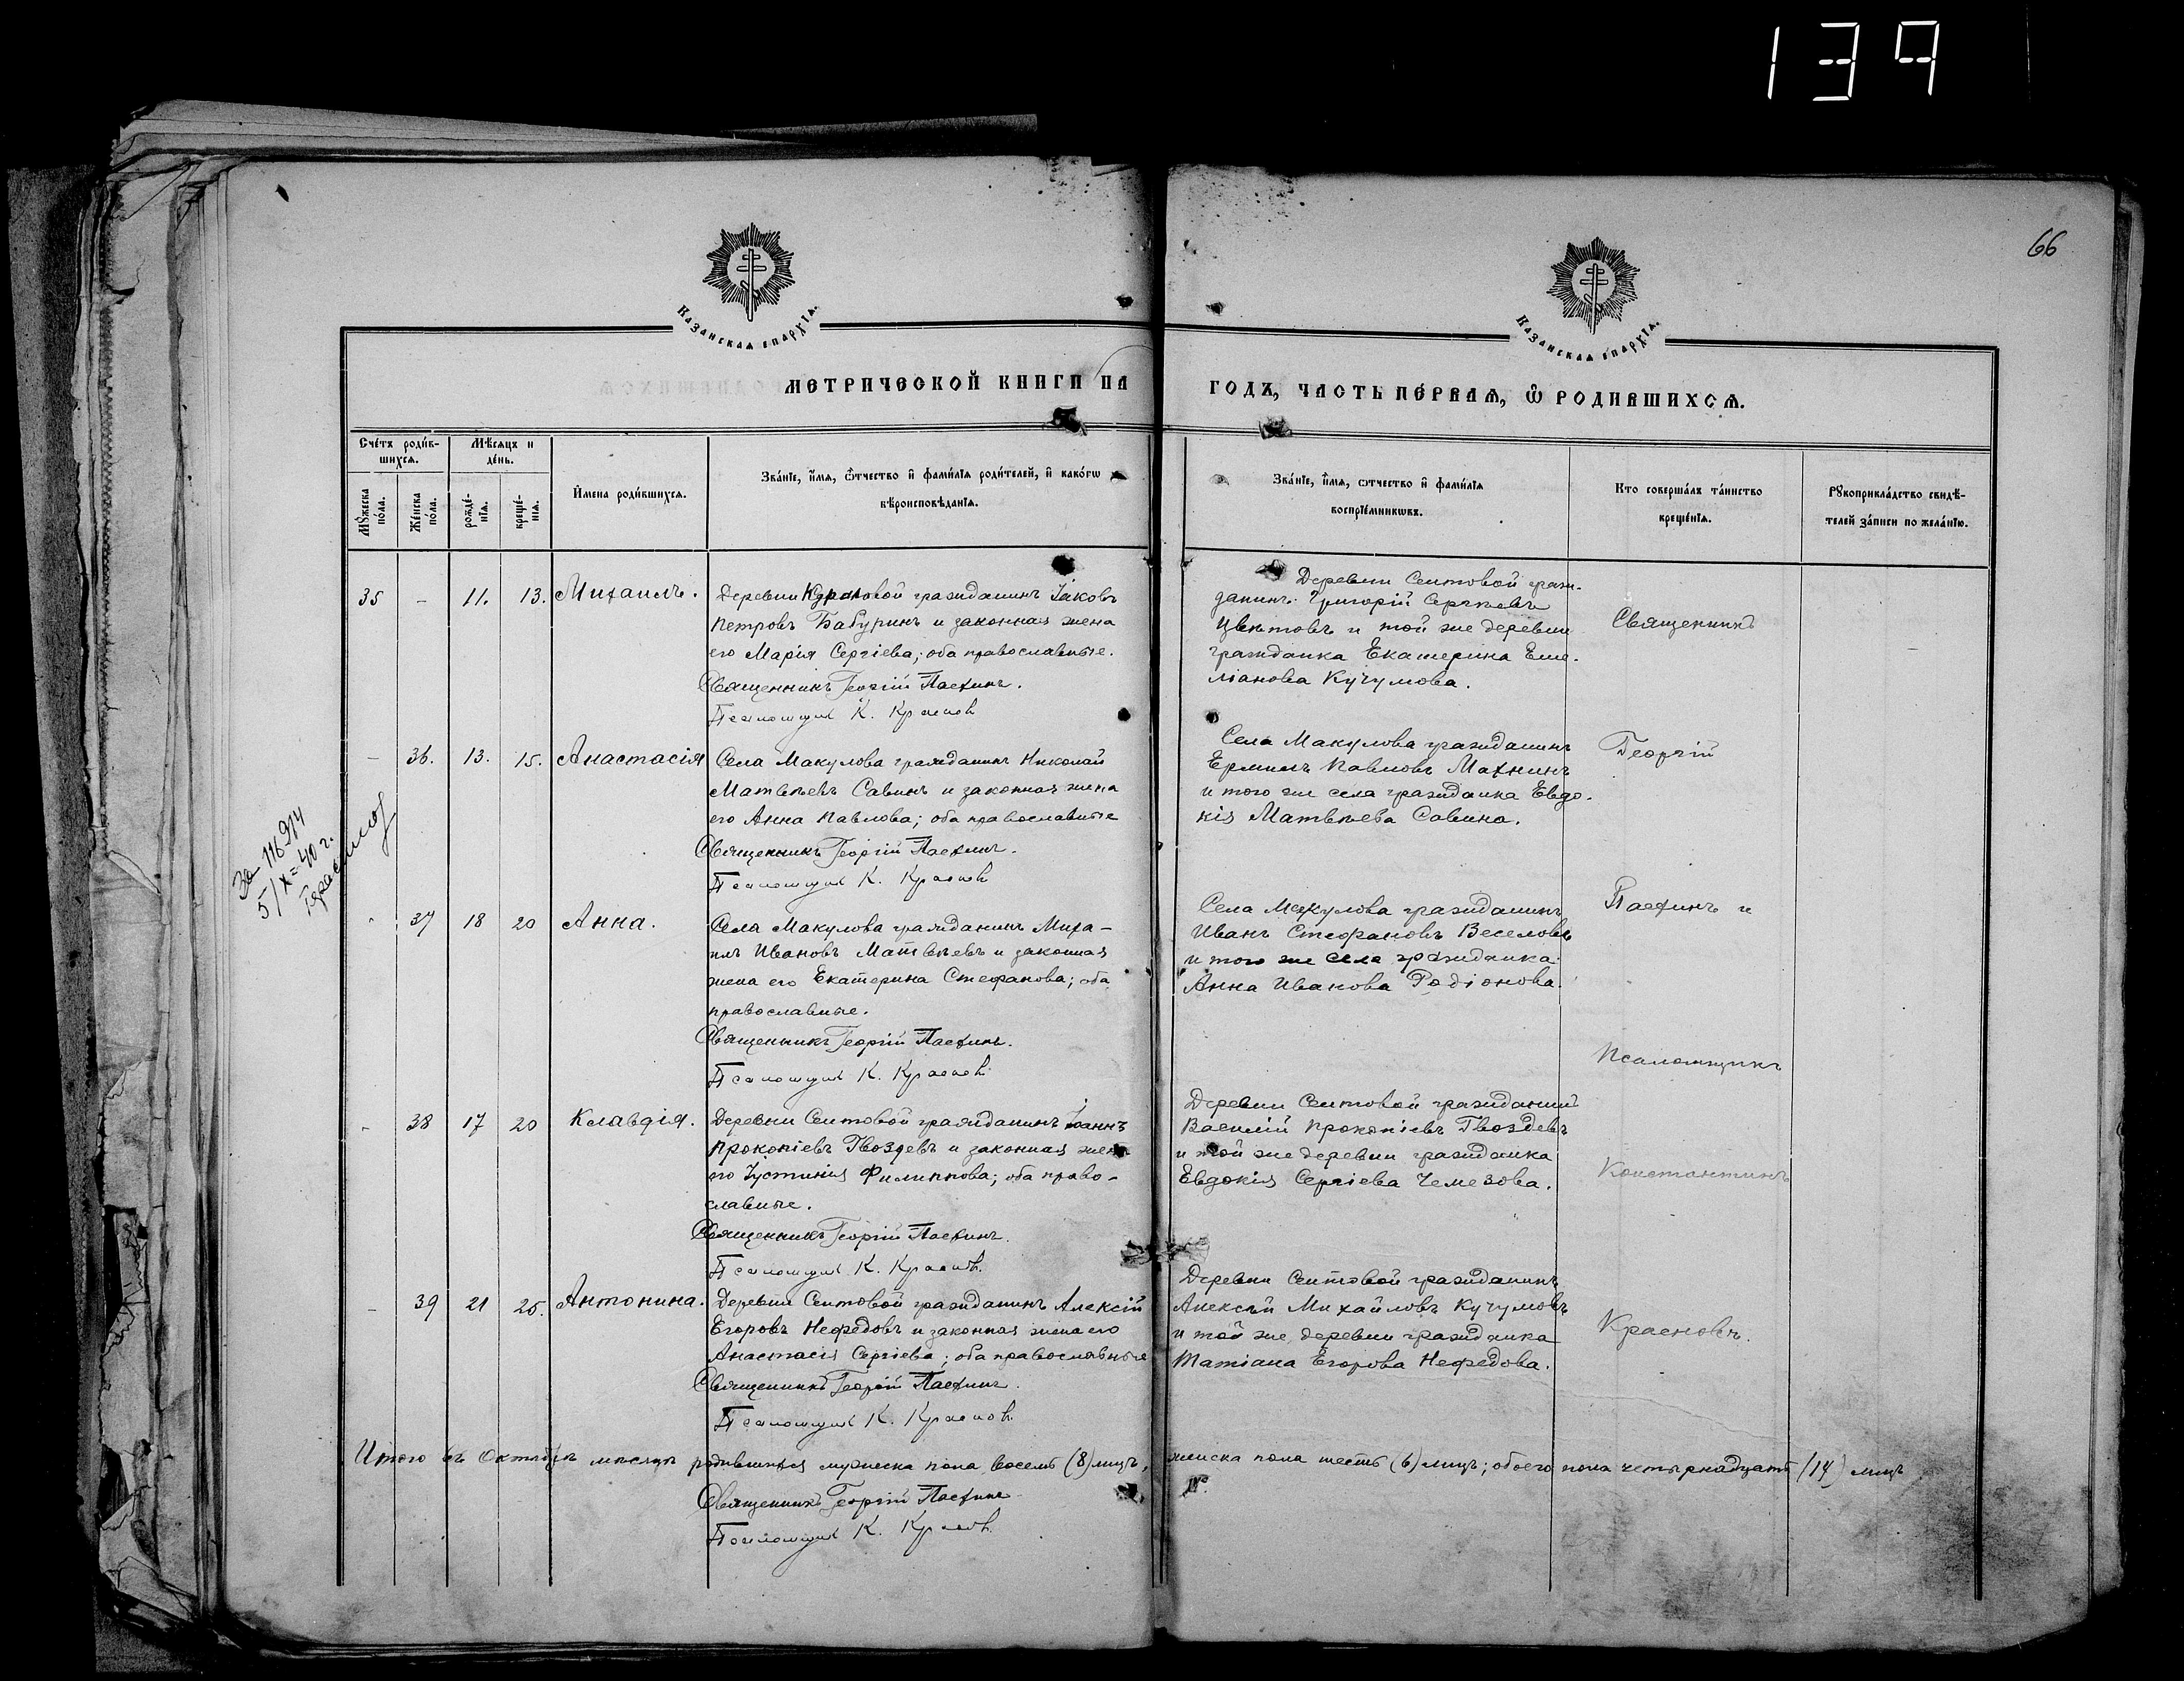 139
66
Казанская епархїа.
Казанская епархїа.
МЕТРИЧЕСКОЙ КНИГИ НА
ГОДЪ, ЧАСТЬ ПЕРВАЯ, Ѿ РОДИВШИХСЯ.
Счётъ роди́вшихся.
Мѣсяцъ и де́нь.
Мꙋжеска по́ла.
Же́нска по́ла.
рожде́нїя.
креще́нїя.
И҆мена роди́вшихся.
Зва́нїе, и҆́мя, ѻ҆́тчество и҆ фами́лїя роди́телей, и҆ како́гѡ
вѣ́роисповѣ́данїя.
Зва́нїе, и҆́мя, ѻтчество и҆ фами́лїя
воспрїе́мникѡвъ.
Кто соверша́лъ та́инство
креще́нїя.
Рꙋкоприкла́дство свидѣ́-
телей за́писи по жела́нїю.
35 - 11. 13. Михаилъ.
Деревни гражданинъ Іаковъ
Петровъ Бабуринъ и законная жена
его Марія Сергіева; оба православные.
Священникъ Георгій Пасхинъ.
Псаломщик К. Краснов
Деревни Сеитовой граж-
данинъ Григорій Сергѣевъ
Цвѣтовъ и той же деревни
гражданка Екатерина Еме-
ліанова Кучумова.
Священникъ
- 36. 13. 15. Анастасія
Села Макулова гражданинъ Николай
Матвѣевъ Савинъ и законная жена
его Анна Павлова; оба православные
Священникъ Георгій Пасхинъ.
Псаломщик К. Краснов
Села Макулова гражданинъ
Ермилъ Павловъ Махнинъ
и того же села гражданка Евдо-
кія Матвѣева Савина.
Георгій
За 116914
5/X=40 г.
- 37 18 20 Анна.
Села Макулова гражданинъ Миха-
илъ Ивановъ Матвѣевъ и законная
жена его Екатерина Стефанова; оба
православные.
Священникъ Георгій Пасхинъ.
Псаломщик К. Краснов
Села Макулова гражданинъ
Иванъ Стефановъ Веселовъ
и того же села гражданка
Анна Иванова Родіонова.
Пасхинъ и
Псаломщикъ
- 38 17 20 Клавдія.
Деревни Сеитовой гражданинъ Іоаннъ
Прокопіевъ Гвоздевъ и законная жена
его Іустинія Филиппова; оба право-
славные.
Священникъ Георгій Пасхинъ.
Псаломщик К. Краснов.
Деревни Сеитовой гражданинъ
Василій Прокопіевъ Гвоздевъ
и той же деревни гражданка
Евдокія Сергіева Чемезова.
Константинъ
- 39 21 25. Антонина.
Деревни Сеитовой гражданинъ Алексій
Егоровъ Нефедовъ и законная жена его
Анастасія Сергіева; оба православные
Священникъ Георгій Пасхинъ.
Псаломщик К. Краснов
Деревни Сеитовой гражданинъ
Алексѣй Михайловъ Кучумовъ
и той же деревни гражданка
Татіана Егорова Нефедова.
Красновъ.
Итого въ Октябрѣ мѣсяцѣ родившихся мужеска пола восемь (8) лицъ, женска пола шесть (6) лицъ; обоего пола четырнадцать (14) лицъ
Священникъ Георгій Пасхинъ
Псаломщик К. Краснов.